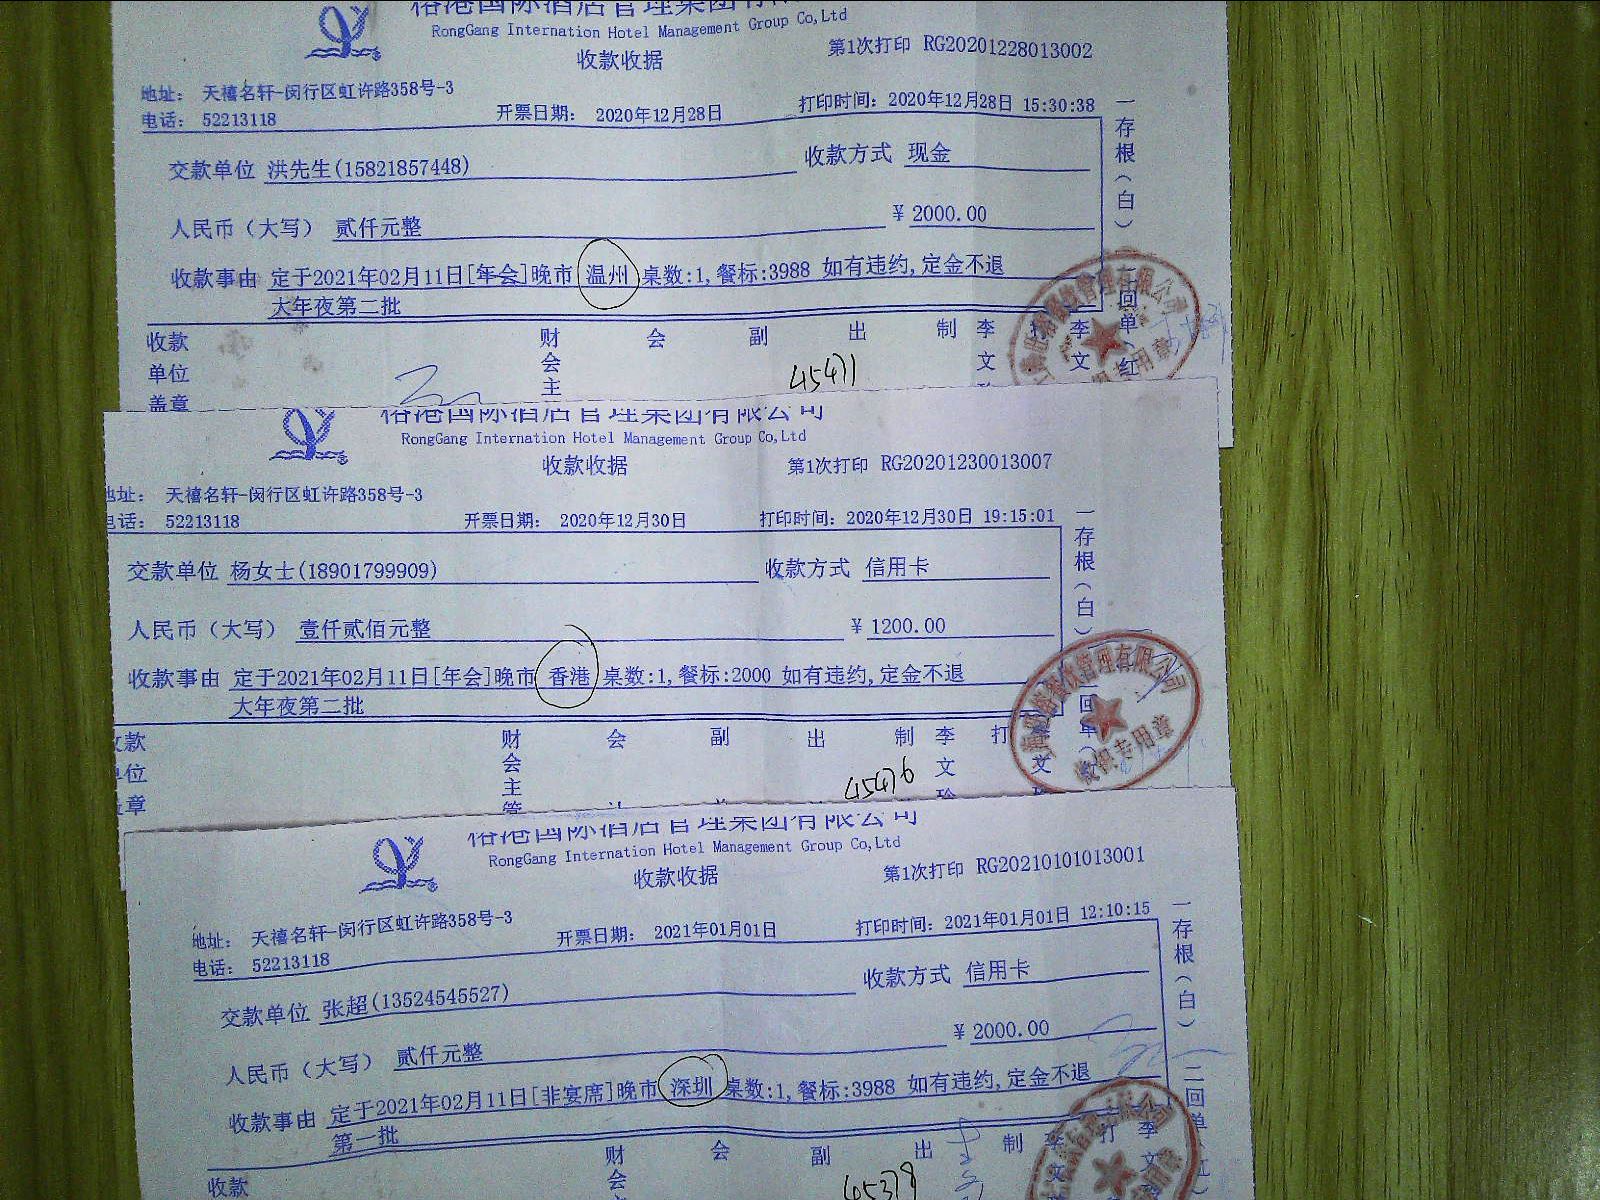 裕港国际酒店管理集团有限公司
RongGang Internation Hotel Management Group Co,Ltd
收款收据
第1次打印 RG20201228013002
地址: 天禧名轩-闵行区虹许路358号-3
电话: 52213118
开票日期: 2020年12月28日
打印时间: 2020年12月28日 15:30:38
交款单位 洪先生(15821857448)
收款方式 现金
人民币(大写) 贰仟元整
¥ 2000.00
收款事由 定于2021年02月11日[年会]晚市 温州 桌数:1,餐标:3988 如有违约,定金不退
大年夜第二批
一存根(白)
二回单(红
收款单位盖章
财会主
会
副
出
制
李文
李文
45471
裕港国际酒店管理集团有限公司
RongGang Internation Hotel Management Group Co,Ltd
收款收据
第1次打印 RG20201230013007
地址: 天禧名轩-闵行区虹许路358号-3
电话: 52213118
开票日期: 2020年12月30日
打印时间: 2020年12月30日 19:15:01
交款单位 杨女士(18901799909)
收款方式 信用卡
人民币(大写) 壹仟贰佰元整
¥ 1200.00
收款事由 定于2021年02月11日[年会]晚市 香港 桌数:1,餐标:2000 如有违约,定金不退
大年夜第二批
一存根(白)
回单
收款单位盖章
财会主管
会
副
出
制
李文珍
打
文
45476
收银专用章
裕港国际酒店管理集团有限公司
RongGang Internation Hotel Management Group Co,Ltd
收款收据
第1次打印 RG20210101013001
地址: 天禧名轩-闵行区虹许路358号-3
电话: 52213118
开票日期: 2021年01月01日
打印时间: 2021年01月01日 12:10:15
交款单位 张超(13524545527)
收款方式 信用卡
人民币(大写) 贰仟元整
¥ 2000.00
收款事由 定于2021年02月11日[非宴席]晚市 深圳 桌数:1,餐标:3988 如有违约,定金不退
第一批
一存根(白)
二回单
收款
财会
会
副
出
制
李文
打
李文
45379